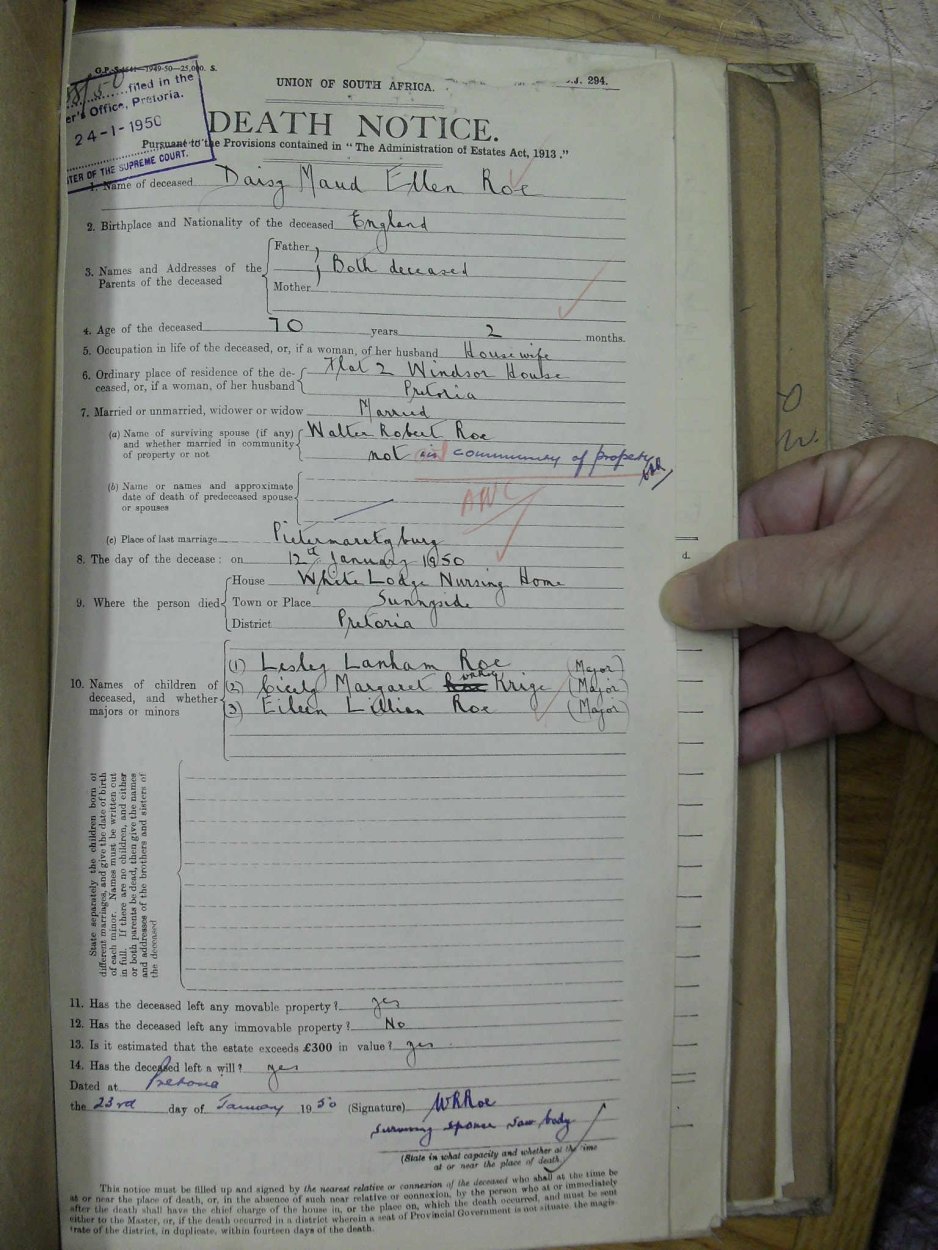 G.P.-S. 1949-50—25,000. S.
UNION OF SOUTH AFRICA.
J. 294.
filed in the
er's Office, Pretoria.
24-1-1950
TER OF THE SUPREME COURT.
DEATH NOTICE.
Pursuant to the Provisions contained in "The Administration of Estates Act, 1913."
1. Name of deceased Daisy Maud Ellen Roe
2. Birthplace and Nationality of the deceased England
3. Names and Addresses of the Parents of the deceased
Father
Both deceased
Mother
4. Age of the deceased 70 years 2 months.
5. Occupation in life of the deceased, or, if a woman, of her husband Housewife
6. Ordinary place of residence of the de-
ceased, or, if a woman, of her husband
Flat 2 Windsor House
Pretoria
7. Married or unmarried, widower or widow Married
(a) Name of surviving spouse (if any)
and whether married in community
of property or not
Walter Robert Roe
not in community of property
ANC
(b) Name or names and approximate
date of death of predeceased spouse
or spouses
(c) Place of last marriage Pietermaritzburg
8. The day of the decease: on 12th January 1950
9. Where the person died
House White Lodge Nursing Home
Town or Place Sunnyside
District Pretoria
10. Names of children of
deceased, and whether
majors or minors
(1) Lesley Lanham Roe (Major)
(2) Cicely Margaret Roe Krige (Major)
(3) Eileen Lillian Roe (Major)
State separately the children born of
different marriages, and give the date of birth
of each minor. Names must be written out
in full. If there are no children, and either
or both parents be dead, then give the names
and addresses of the brothers and sisters of
the deceased
11. Has the deceased left any movable property? yes
12. Has the deceased left any immovable property? No
13. Is it estimated that the estate exceeds £300 in value? yes
14. Has the deceased left a will? yes
Dated at Pretoria
the 23rd day of January 1950 (Signature) WRRoe
surviving spouse saw body
(State in what capacity and whether at the time
at or near the place of death.)
This notice must be filled up and signed by the nearest relative or connexion of the deceased who shall at the time be
at or near the place of death, or, in the absence of such near relative or connexion, by the person who at or immediately
after the death shall have the chief charge of the house in, or the place on, which the death occurred, and must be sent
either to the Master, or, if the death occurred in a district wherein a seat of Provincial Government is not situate, the magis-
trate of the district, in duplicate, within fourteen days of the death.
d.